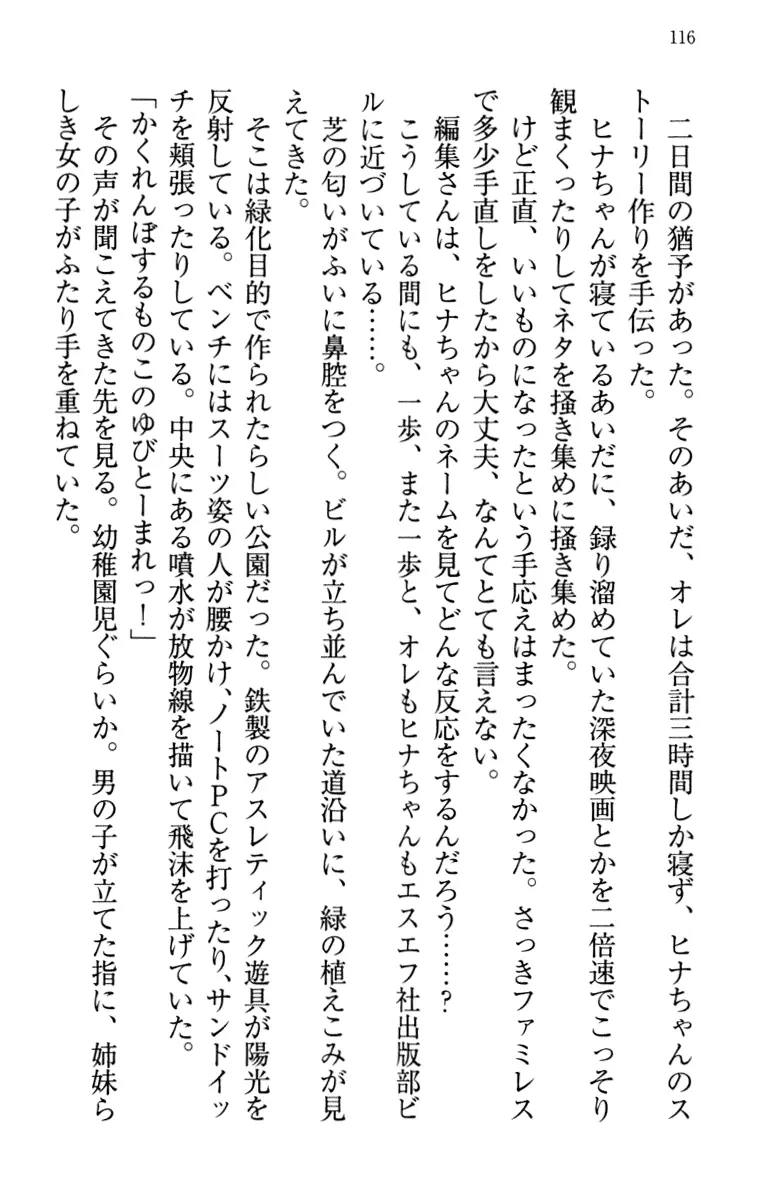 116
二日間の猶予があった。そのあいだ、オレは合計三時間しか寝ず、ヒナちゃんのス
トーリー作りを手伝った。
ヒナちゃんが寝ているあいだに、録り溜めていた深夜映画とかを二倍速でこっそり
観まくったりしてネタを掻き集めに掻き集めた。
けど正直、いいものになったという手応えはまったくなかった。さっきファミレス
で多少手直しをしたから大丈夫、なんてとても言えない。
編集さんは、ヒナちゃんのネームを見てどんな反応をするんだろう……？
こうしている間にも、一歩、また一歩と、オレもヒナちゃんもエスエフ社出版部ビ
ルに近づいている……。
芝の匂いがふいに鼻腔をつく。ビルが立ち並んでいた道沿いに、緑の植えこみが見
えてきた。
そこは緑化目的で作られたらしい公園だった。鉄製のアスレティック遊具が陽光を
反射している。ベンチにはスーツ姿の人が腰かけ、ノートPCを打ったり、サンドイッ
チを頬張ったりしている。中央にある噴水が放物線を描いて飛沫を上げていた。
「かくれんぼするものこのゆびとーまれっ！」
その声が聞こえてきた先を見る。幼稚園児ぐらいか。男の子が立てた指に、姉妹ら
しき女の子がふたり手を重ねていた。